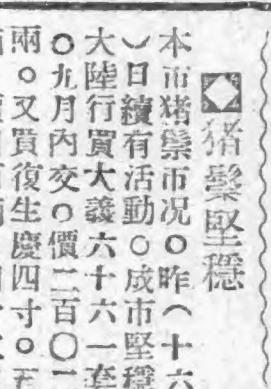 猪鬃堅穩
本市猪鬃市况○昨(十六
)日續有活動○成市堅穩
大陸行買大義六十六一套
○九月內交○價二百○
兩○又買復生慶四寸○五